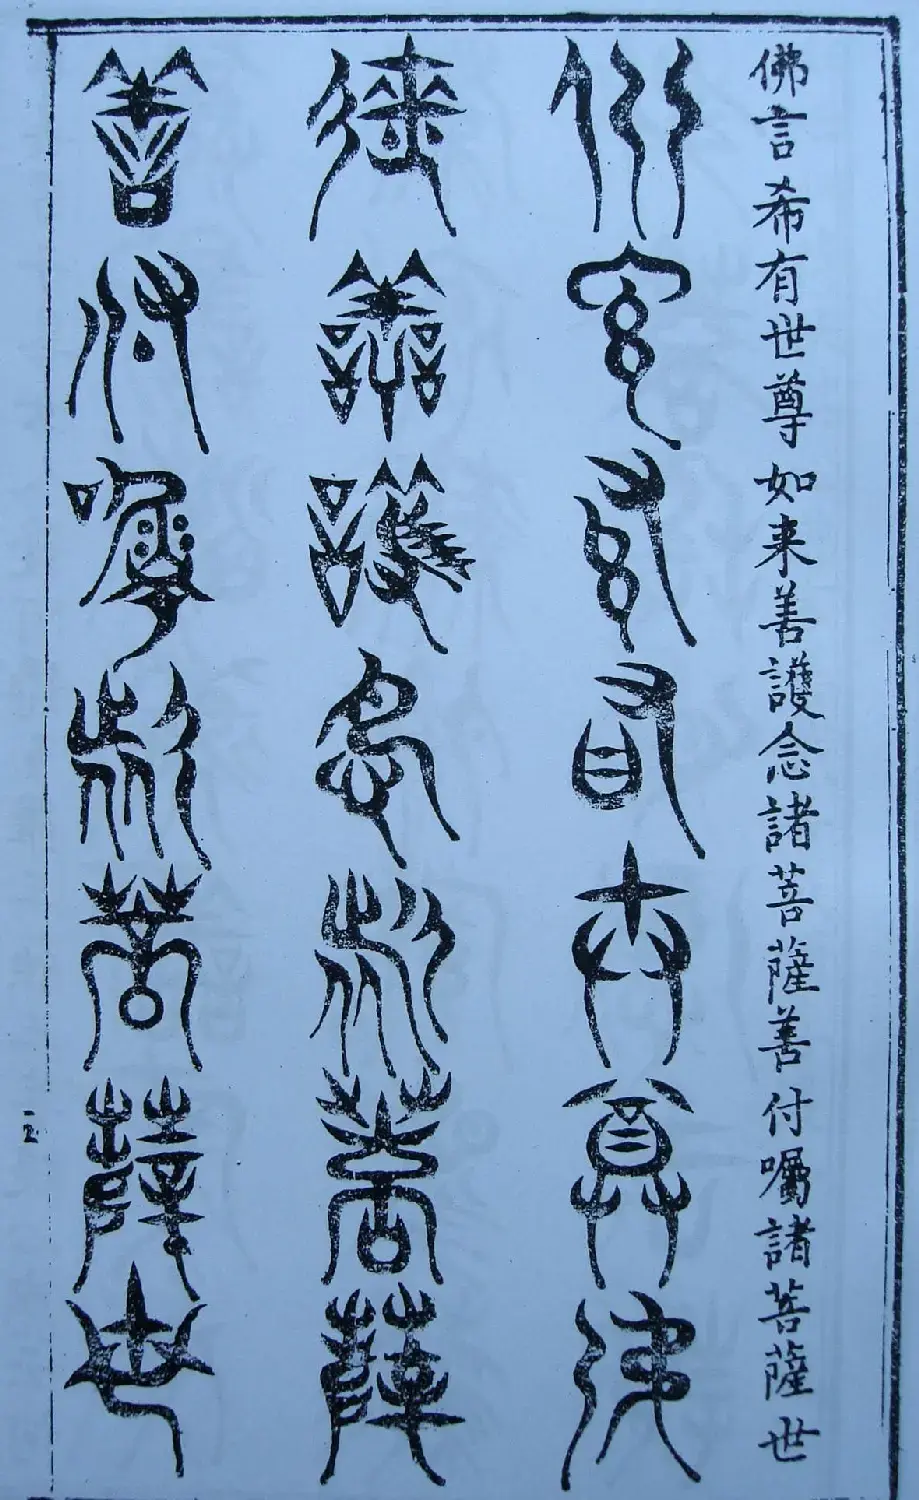 佛言希有世尊如来善護念諸菩薩善付囑諸菩薩世
佛言希有世尊如
来善護念諸菩薩
善付囑諸菩薩世